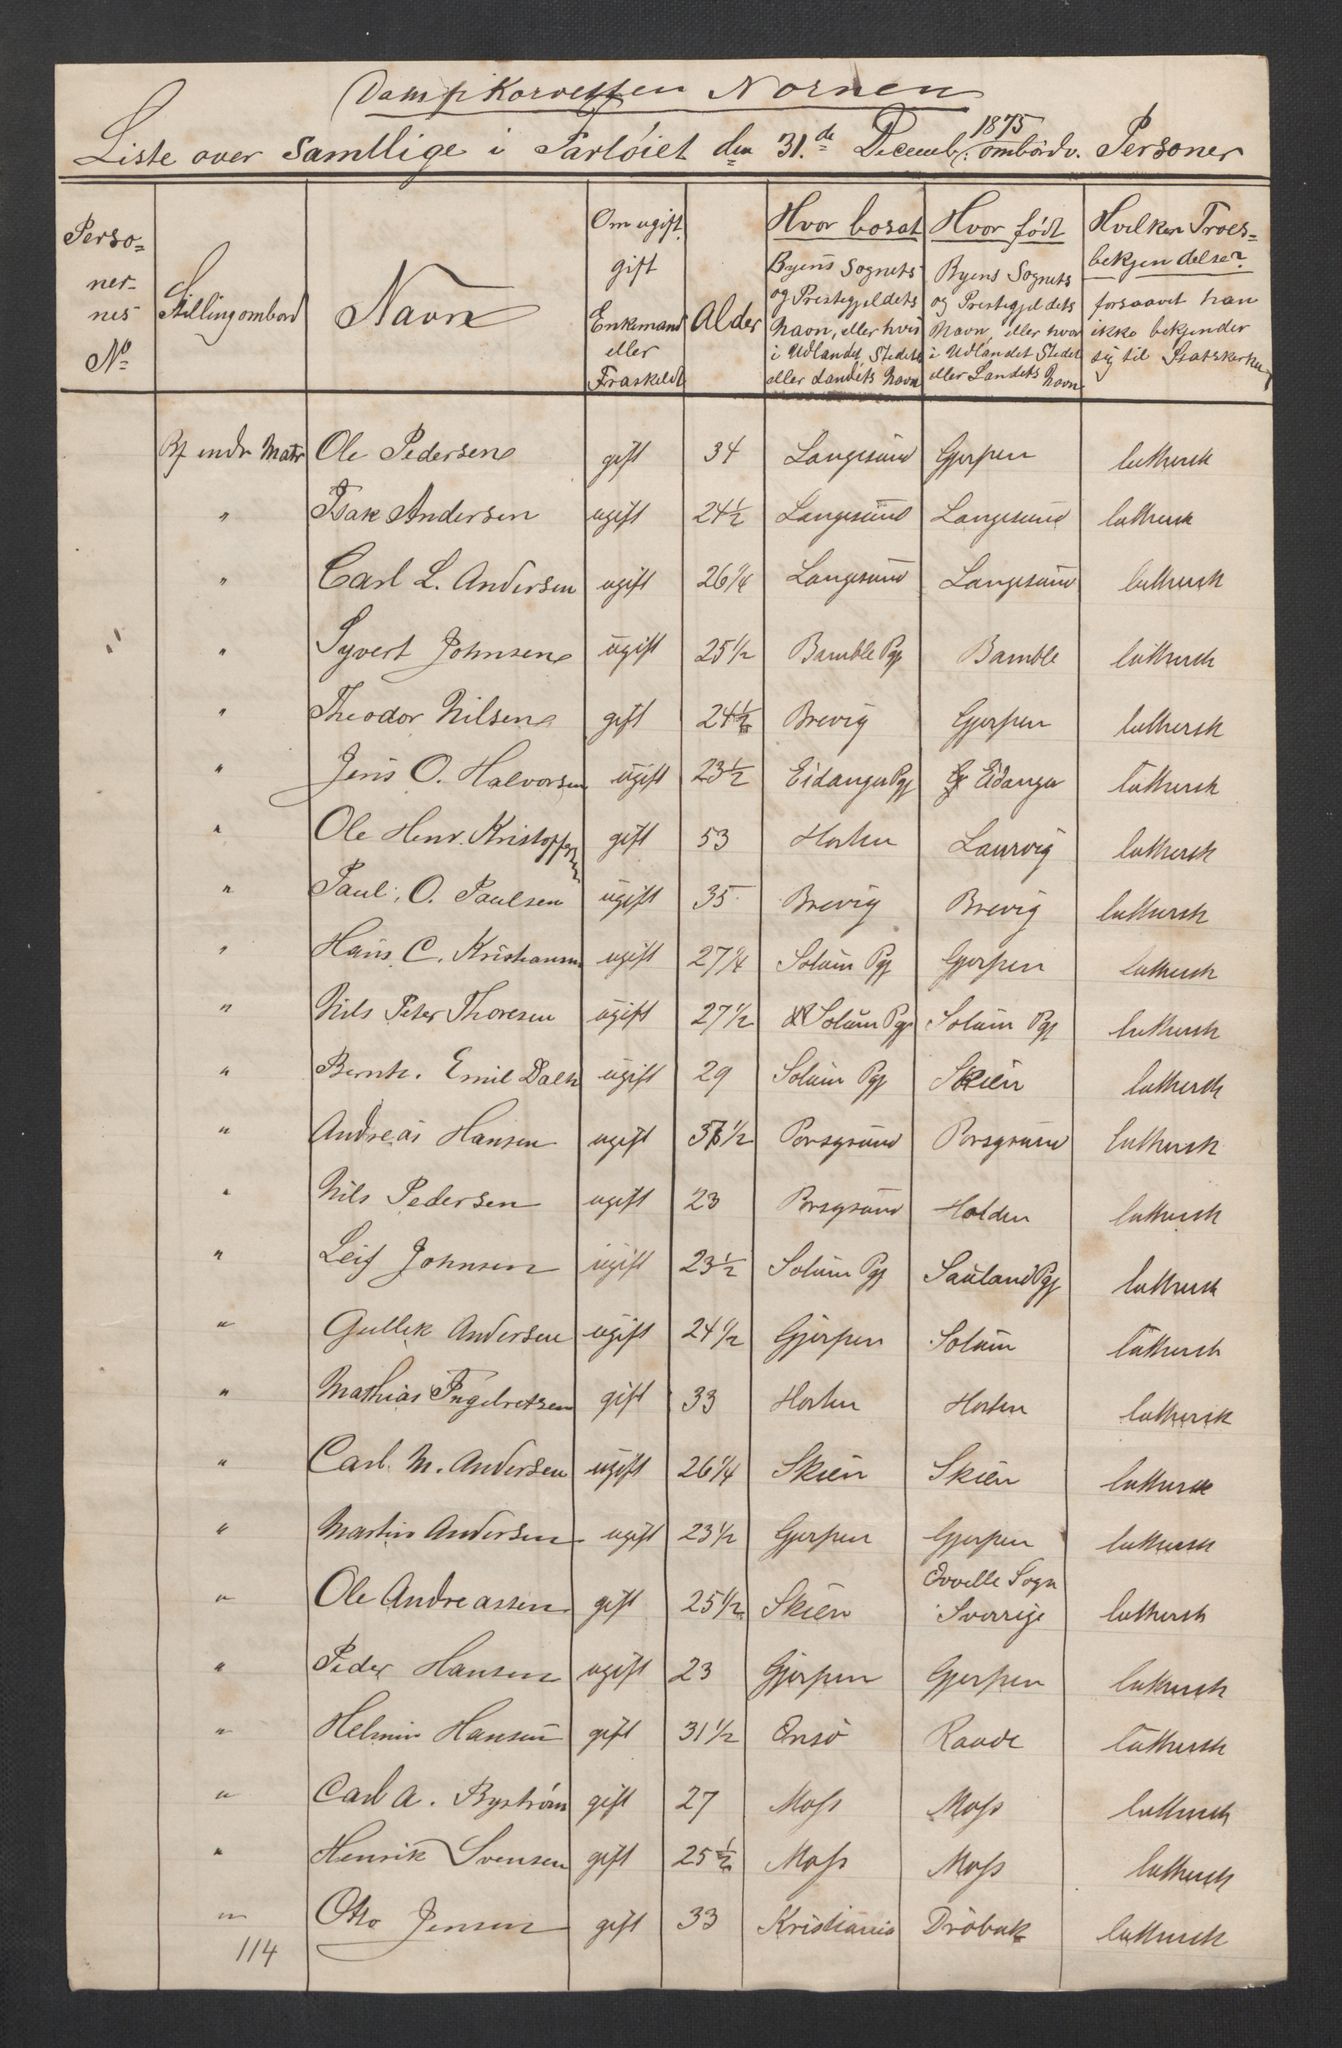 Dampkorvetten Nornen
Liste over samtlige i Fartøiet den 31.de Decemb. 1875 ombordv. Personer
Perso=nernes No | Stilling ombord | Navn | Om ugift, gift Enkmand eller Fraskeldt | Alder | Hvor bosat Byens Sognets og Prestegjeldets Navn, eller hvis i Udlandet, Stedets eller Landets Navn | Hvor født Byens Sognets og Prestegjeldets Navn, eller hvor i Udlandet Stedet eller Landets Navn | Hvilken Troes=bekjendelse? forsaavet han ikke bekjender sig til Statskerken
Bf indr Matr Ole Pedersen gift 34 Langesund Gjerpen luthersk
" Isak Andersen ugift 24½ Langesund Langesund luthersk
" Carl L. Andersen ugift 26¼ Langesund Langesund luthersk
" Syvert Johnsen ugift 25½ Bamble Pgj Bamble luthersk
" Theodor Nilsen gift 24½ Brevig Gjerpen luthersk
" Jens O. Halvorsen ugift 23½ Eidanger Pgj Eidanger luthersk
" Ole Henr. Kristoffersen gift 53 Horten Laurvig luthersk
" Paul. O. Paulsen ugift 35 Brevig Brevig luthersk
" Hans C. Kristiansen ugift 27¼ Solum Pgj Gjerpen luthersk
" Nils Peter Thoresen ugift 27½ Solum Pgj Solum Pgj luthersk
" Bernh. Emil Dalh ugift 29 Solum Pgj Skien luthersk
" Andreas Hansen ugift ½ Porsgrund Porsgrund luthersk
" Nils Pedersen ugift 23 Porsgrund Holden luthersk
" Leif Johnsen ugift 23½ Solum Pgj Sauland Pgj luthersk
" Gullik Andersen ugift 24½ Gjerpen Solum luthersk
" Mathias Ingelretsen gift 33 Horten Horten luthersk
" Carl. M. Andersen ugift 26¼ Skien Skien luthersk
" Martin Andersen ugift 23½ Gjerpen Gjerpen luthersk
" Ole Andreassen gift 25½ Skien Qvelle Sogn Sverrige luthersk
" Peder Hansen ugift 23 Gjerpen Gjerpen luthersk
" Helmin Hansen gift 31½ Onsø Raade luthersk
" Carl A. Byström gift 27 Moss Moss luthersk
" Henrik Svensen gift 25½ Moss Moss luthersk
" Otto Jensen gift 33 Kristiania Drøbak luthersk
114